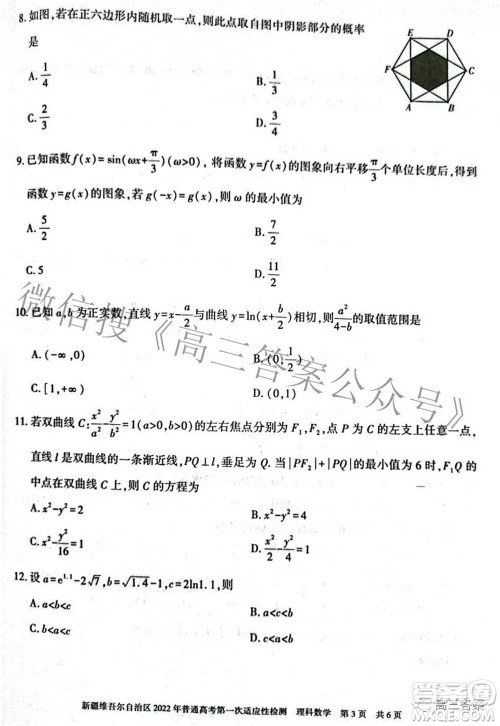 8. 如图,若在正六边形内随机取一点,则此点取自图中阴影部分的概率
是
E D
F C
A B
A. 1/4 B. 1/3
C. 2/3 D. 3/4
9. 已知函数f(x)=sin(ωx+π/3)(ω>0),将函数y=f(x)的图象向右平移π/3个单位长度后,得到
函数y=g(x)的图象,若g(-x)=g(x),则ω的最小值为
A. 5/2 B. 7/2
C. 5 D.
10. 已知a,b为正实数,直线y=x-a/2与曲线y=ln(x+b/2)相切,则a²/(4-b)的取值范围是
A. (-∞,0) B. (0,1/2)
C. [1,+∞) D. (0,1)
11. 若双曲线C:x²/a²-y²/b²=1(a>0,b>0)的左右焦点分别为F₁,F₂,点P为C的左支上任意一点,
直线l是双曲线的一条渐近线,PQ⊥l,垂足为Q.当|PF₂|+|PQ|的最小值为6时,F₁Q的
中点在双曲线C上,则C的方程为
A. x²-y²=2 B. x²-y²=4
C. x²-y²/16=1 D. x²/2-y²/4=1
12. 设a=e^1.1-2√7,b=√1.4-1,c=2ln1.1,则
A. a<b<c B. a<c<b
C. b<a<c D. c<a<b
新疆维吾尔自治区2022年普通高考第一次适应性检测 理科数学 第3页 共6页
微信搜《高三答案公众号》
高三答案